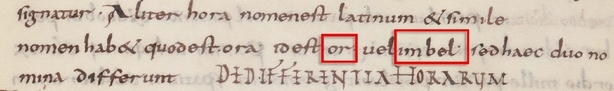 signatur. Aliter hora nomen est latinum & simile
nomen hab& quod est ora id est or vel imbel sed haec duo no
mina differunt DE DIFFERENTIA HORARUM